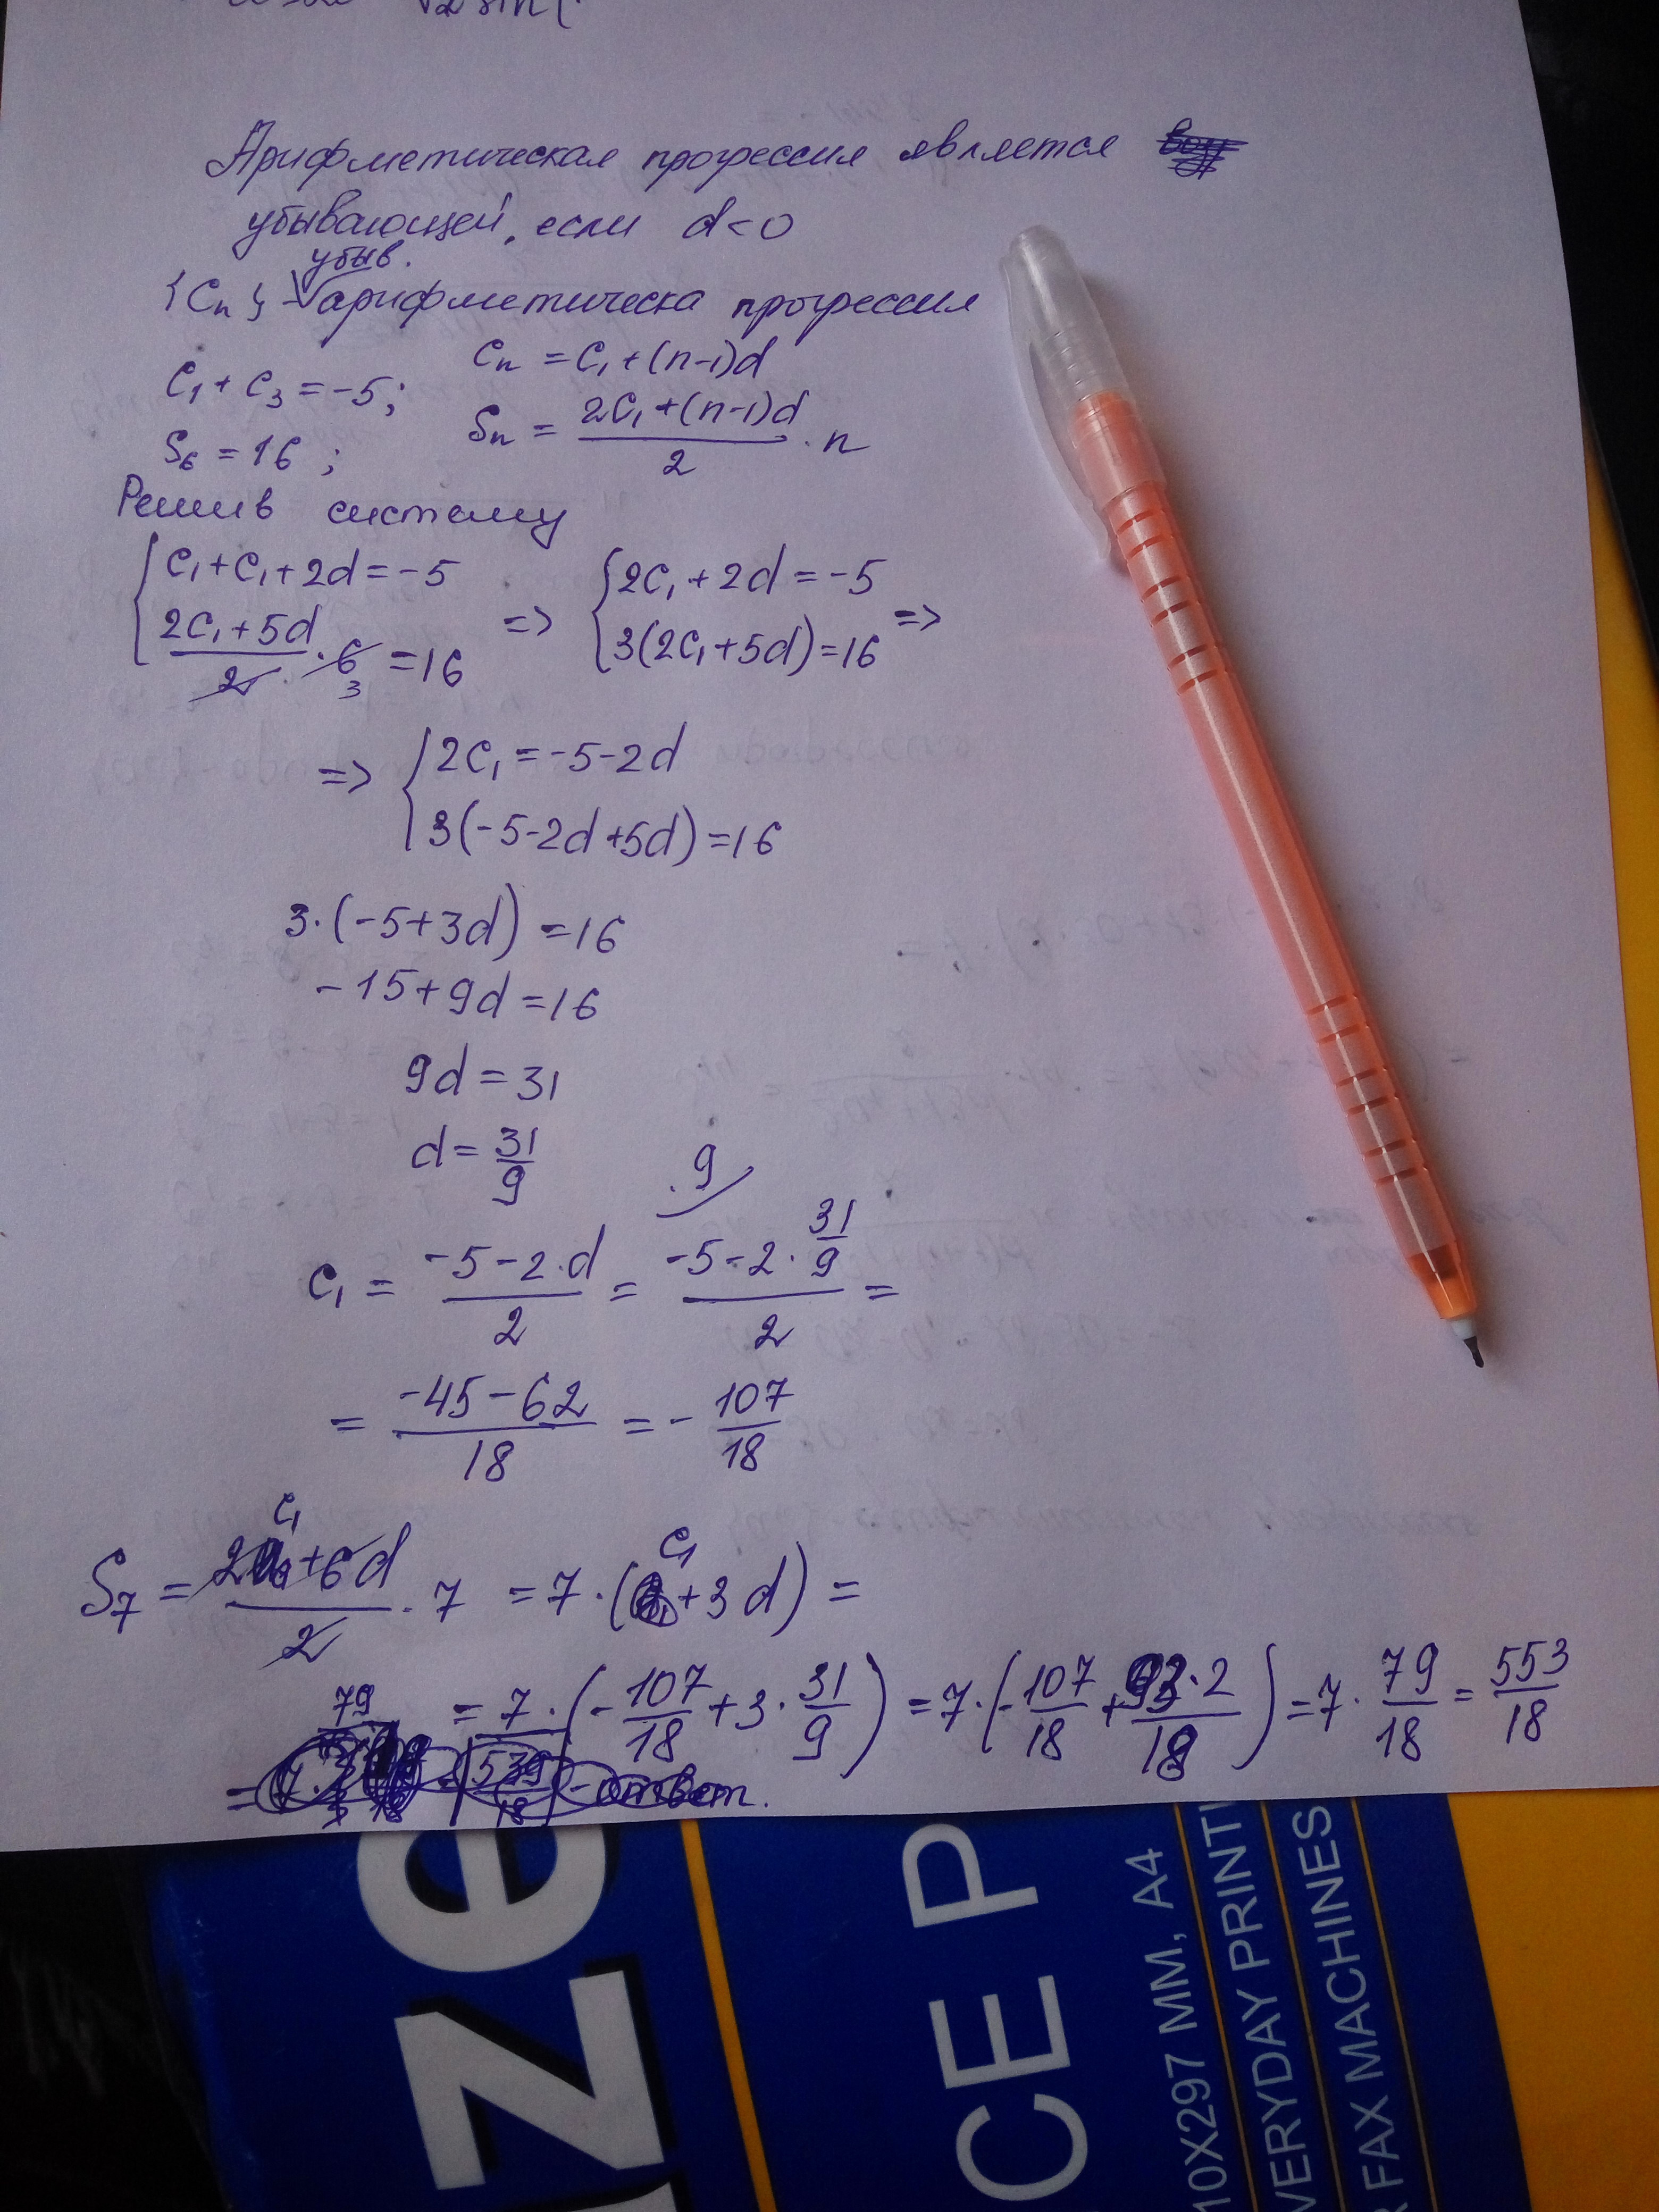 √2 sin(
Арифметическая прогрессия является
убывающей, если d<0
убыв.
{Cn} - арифметическа прогрессия
C1 + C3 = -5; Cn = C1 + (n-1)d
S6 = 16; Sn = (2C1 + (n-1)d)/2 · n
Решив систему
{C1 + C1 + 2d = -5 => {2C1 + 2d = -5 =>
(2C1 + 5d)/2 · 6 = 16 3(2C1 + 5d) = 16
3
=> {2C1 = -5 - 2d
3(-5 - 2d + 5d) = 16
3·(-5 + 3d) = 16
-15 + 9d = 16
9d = 31
d = 31/9
.9
C1 = (-5 - 2·d)/2 = (-5 - 2·31/9)/2 =
= (-45 - 62)/18 = - 107/18
S7 = (2C1 + 6d)/2 · 7 = 7·(C1 + 3d) =
= 7·(-107/18 + 3·31/9) = 7·(-107/18 + 93·2/18) = 7·79/18 = 553/18
79
= 539/18 - ответ.
ze
CE P
10X297 MM, A4
VERYDAY PRINTI
FAX MACHINES